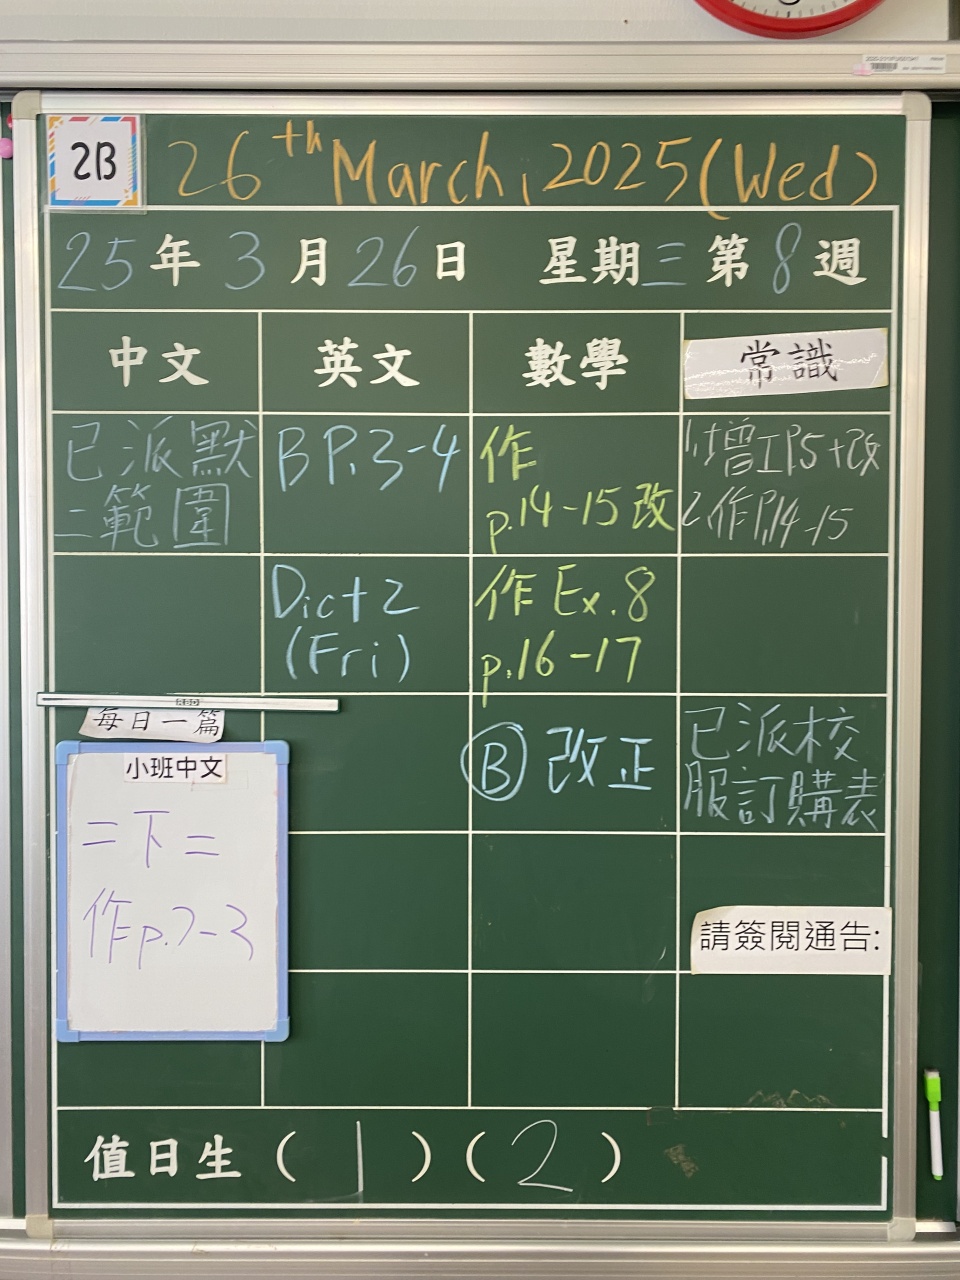 2B
26th March, 2025 (Wed)
25年3月26日 星期三 第8週
中文
英文
數學
常識
已派默
二範圍
B P.3-4
作
p.14-15 改
1.增工P.5+改
2.作P.14-15
Dict 2
(Fri)
作 Ex.8
p.16-17
每日一篇
小班中文
二下二
作p.2-3
Ⓑ 改正
已派校
服訂購表
請簽閱通告:
值日生(1)(2)